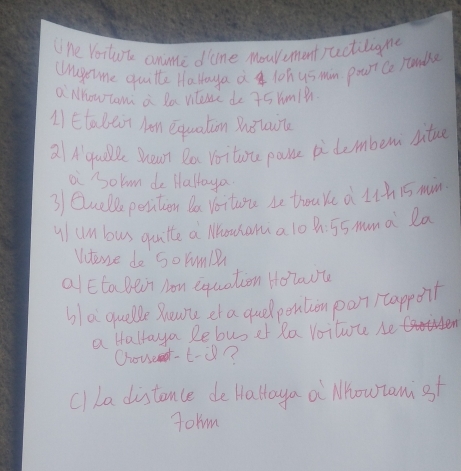 Une Voiture animé d'une mouvement rectiligne
Uniforme quitte Hattaya à 10h 45 min pour ce rendre
à Nkourani à la vitesse de 75 km/h.
1) Etablir son équation horaire
2) A'quelle heure la voiture passe à dembeni situe
à 30km de Hattaya
3) Quelle position la voiture se trouve à 11h15 min.
4) un bus quitte à Nkourani a 10h:55 mn à la
Vitesse de 50km/h
a) Etablir son équation Horaire
b) à quelle heure et a quel position par rapport
a Hattaya le bus et la Voiture se
Croisent-t-il?
c) La distance de Hattaya à Nkourani est
70km